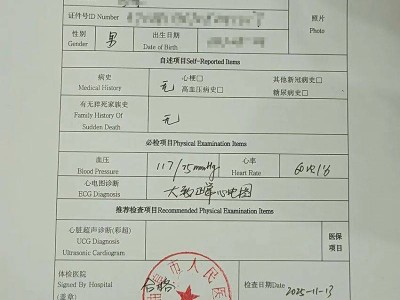 证件号ID Number
照片
Photo
性别
Gender
男
出生日期
Date of Birth
自述项目Self-Reported Items
病史
Medical History
无
心梗□ 其他新冠病史□
高血压病史□ 糖尿病史□
有无猝死家族史
Family History Of
Sudden Death
无
必检项目Physical Examination Items
血压
Blood Pressure
117/75mmHg
心率
Heart Rate
60次/分
心电图诊断
ECG Diagnosis
大致正常心电图
推荐检查项目Recommended Physical Examination Items
心脏超声诊断(彩超)
UCG Diagnosis
Ultrasonic Cardiogram
医保
项目
体检医院
Signed By Hospital
(盖章)
合格
市人民医
检查日期Date
2025-11-13